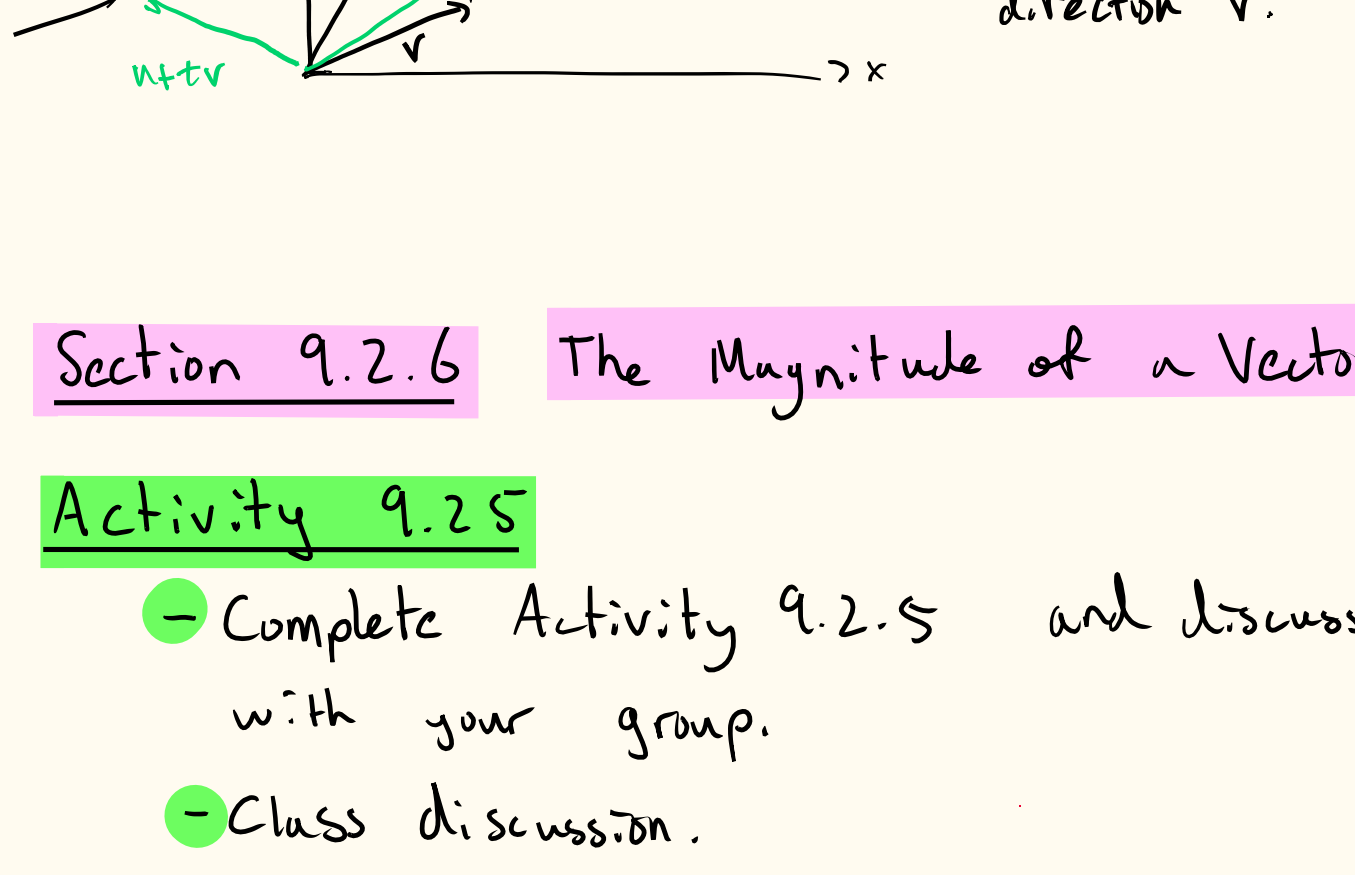 direction v.
v
u+tv
x
Section 9.2.6 The Magnitude of a Vecto
Activity 9.25
- Complete Activity 9.2.5 and discuss
with your group.
- Class discussion.